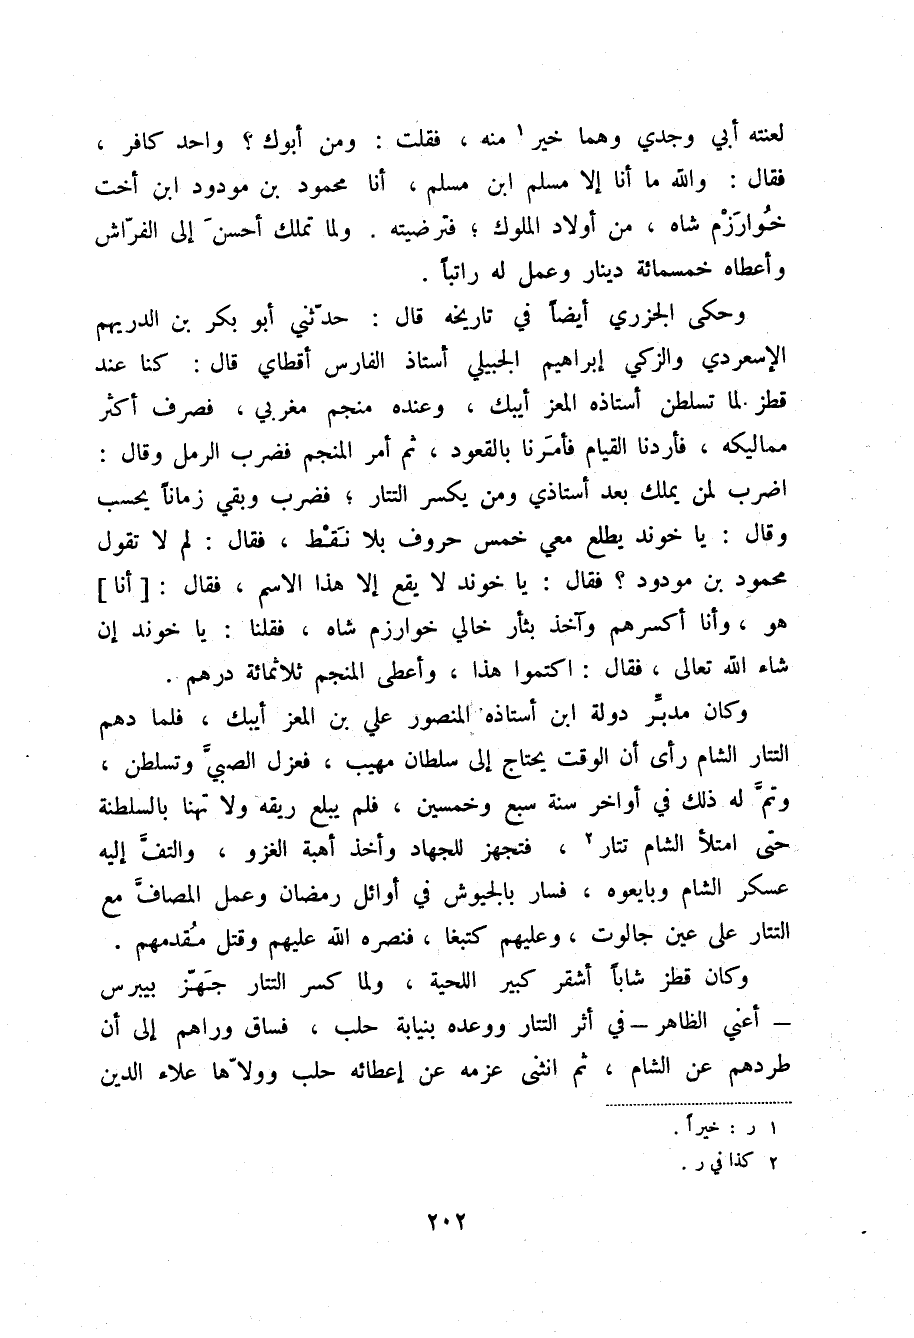 لعنته أبي وجدي وهما خير١ منه ، فقلت : ومن أبوك ؟ واحد كافر ،
فقال : والله ما أنا إلا مسلم ابن مسلم ، أنا محمود بن مودود ابن أخت
خُوارَزْم شاه ، من أولاد الملوك ؛ فترضيته . ولما تملك أحسنَ إلى الفرّاش
وأعطاه خمسمائة دينار وعمل له راتباً .
وحكى الجزري أيضاً في تاريخه قال : حدّثني أبو بكر بن الدريهم
الإسعردي والزكي إبراهيم الجبيلي أستاذ الفارس أقطاي قال : كنا عند
قطز لما تسلطن أستاذه المعز أيبك ، وعنده منجم مغربي ، فصرف أكثر
مماليكه ، فأردنا القيام فأمَرنا بالقعود ، ثم أمر المنجم فضرب الرمل وقال :
اضرب لمن يملك بعد أستاذي ومن يكسر التتار ؛ فضرب وبقي زماناً يحسب
وقال : يا خوند يطلع معي خمس حروف بلا نَقْط ، فقال : لم لا تقول
محمود بن مودود ؟ فقال : يا خوند لا يقع إلا هذا الاسم ، فقال : [ أنا ]
هو ، وأنا أكسرهم وآخذ بثأر خالي خوارزم شاه ، فقلنا : يا خوند إن
شاء الله تعالى ، فقال : اكتموا هذا ، وأعطى المنجم ثلاثمائة درهم .
وكان مدبِّر دولة ابن أستاذه المنصور علي بن المعز أيبك ، فلما دهم
التتار الشام رأى أن الوقت يحتاج إلى سلطان مهيب ، فعزل الصبيَّ وتسلطن ،
وتمَّ له ذلك في أواخر سنة سبع وخمسين ، فلم يبلع ريقه ولا تهنا بالسلطنة
حتى امتلأ الشام تتار٢ ، فتجهز للجهاد وأخذ أهبة الغزو ، والتفَّ إليه
عسكر الشام وبايعوه ، فسار بالجيوش في أوائل رمضان وعمل المصافَّ مع
التتار على عين جالوت ، وعليهم كتبغا ، فنصره الله عليهم وقتل مُقدمهم .
وكان قطز شاباً أشقر كبير اللحية ، ولما كسر التتار جَهّز بيبرس
ــ أعني الظاهر ــ في أثر التتار ووعده بنيابة حلب ، فساق وراهم إلى أن
طردهم عن الشام ، ثم انثنى عزمه عن إعطائه حلب وولاّها علاء الدين
١ ر : خيراً .
٢ كذا في ر .
٢٠٢